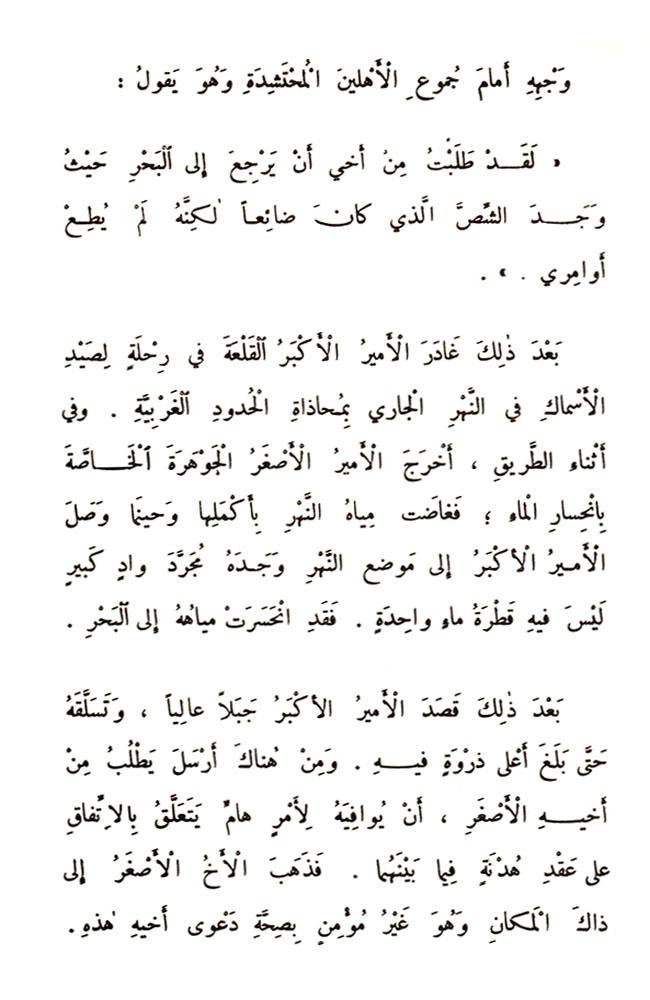 وَجْهِهِ أَمامَ جُموعِ الْأَهلينَ الْمُحْتَشِدَةِ وَهُوَ يَقولُ :
« لَقَـــدْ طَلَبْتُ مِنْ أَخي أَنْ يَرْجِعَ إلى الْبَحْرِ حَيْثُ
وَجَـــدَ الشِّصَّ الَّذي كانَ ضائِعـاً لٰكِنَّهُ لَمْ يُطِـعْ
أَوامِري . » .
بَعْدَ ذٰلِكَ غَادَرَ الْأَميرُ الْأَكْبَرُ الْقَلْعَةَ في رِحْلَةٍ لِصَيْدِ
الْأَسْماكِ في النَّهْرِ الْجاري بِمُحاذاةِ الْحُدودِ الْغَرْبِيَّةِ . وفي
أَثْناءِ الطَّريقِ ، أَخْرَجَ الْأَميرُ الْأَصْغَرُ الْجَوْهَرَةَ الْخَـــاصَّةَ
بِانْحِسارِ الْماءِ ؛ فَغاضَت مِياهُ النَّهْرِ بِأَكْمَلِها وَحينَما وَصَلَ
الْأَمـيرُ الْأَكْبَرُ إلى مَوضع النَّهْرِ وَجَـدَهُ مُجَرَّدَ وادٍ كَبيرٍ
لَيْسَ فيهِ قَطْرَةُ ماءٍ واحِدَةٍ . فَقَدِ انْحَسَرَتْ مياهُهُ إلى الْبَحْرِ .
بَعْدَ ذٰلِكَ قَصَدَ الْأَميرُ الأَكْبَرُ جَبَلاً عالِياً ، وَتَسَلَّقَهُ
حَتَّى بَلَغَ أَعْلى ذرْوَةٍ فيـــهِ . وَمِنْ هُناكَ أَرْسَلَ يَطْلُبُ مِنْ
أَخيـــهِ الْأَصْغَرِ ، أَنْ يُوافِيَهُ لِأَمْرٍ هامٍّ يَتَعَلَّقُ بِالاِتِّفاقِ
على عَقْدِ هُدْنَةٍ فِيما بَيْنَهُما . فَذَهَبَ الْأَخُ الْأَصْغَرُ إلى
ذاكَ الْمَكانِ وَهُوَ غَيْرُ مُؤْمِنٍ بِصِحَّةِ دَعْوى أَخيهِ هٰذهِ .